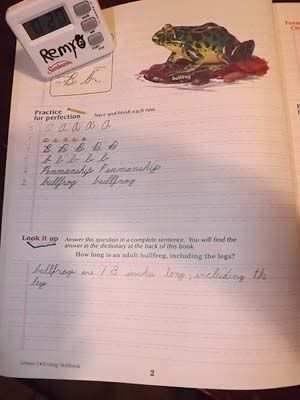 1:20
Remy
Sunbeam
B b
bullfrog
Practice for perfection
Trace and finish each row.
a a a a a
a a a a a
B B B B B
b b b b b
Penmanship Penmanship
bullfrog bullfrog
Look it up
Answer this question in a complete sentence. You will find the
answer in the dictionary at the back of this book.
How long is an adult bullfrog, including the legs?
bullfrogs are 18 inches long, including the
legs
Lesson 2 • Writing Skillbook
2